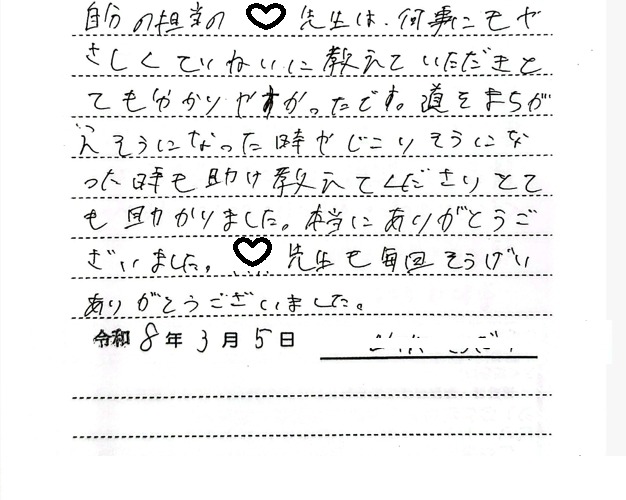 自分の担当の ♡ 先生は、何事にもや
さしくていねいに教えていただきと
てもわかりやすかったです。道をまちが
えそうになった時やじこりそうにな
った時も助け教えてくださりとて
も助かりました。本当にありがとうご
ざいました。♡ 先生も毎回そうげい
ありがとうございました。
令和 8年 3月 5日